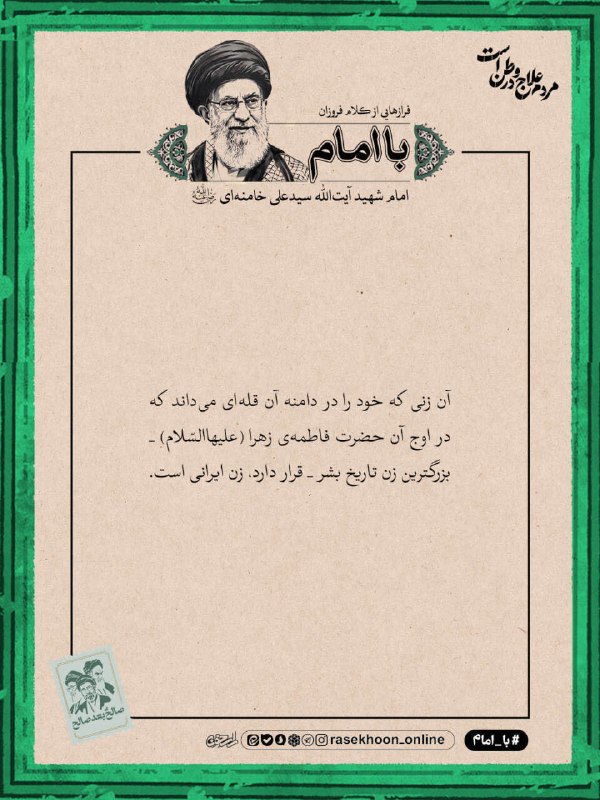 مردم علاج در وطن است
فرازهایی از کلام فروزان
با امام
امام شهید آیت‌الله سیدعلی خامنه‌ای
آن زنی که خود را در دامنه آن قله‌ای می‌داند که
در اوج آن حضرت فاطمه‌ی زهرا (علیهاالسّلام) ـ
بزرگترین زن تاریخ بشر ـ قرار دارد، زن ایرانی است.
صالح بعد صالح
rasekhoon_online
#با_امام